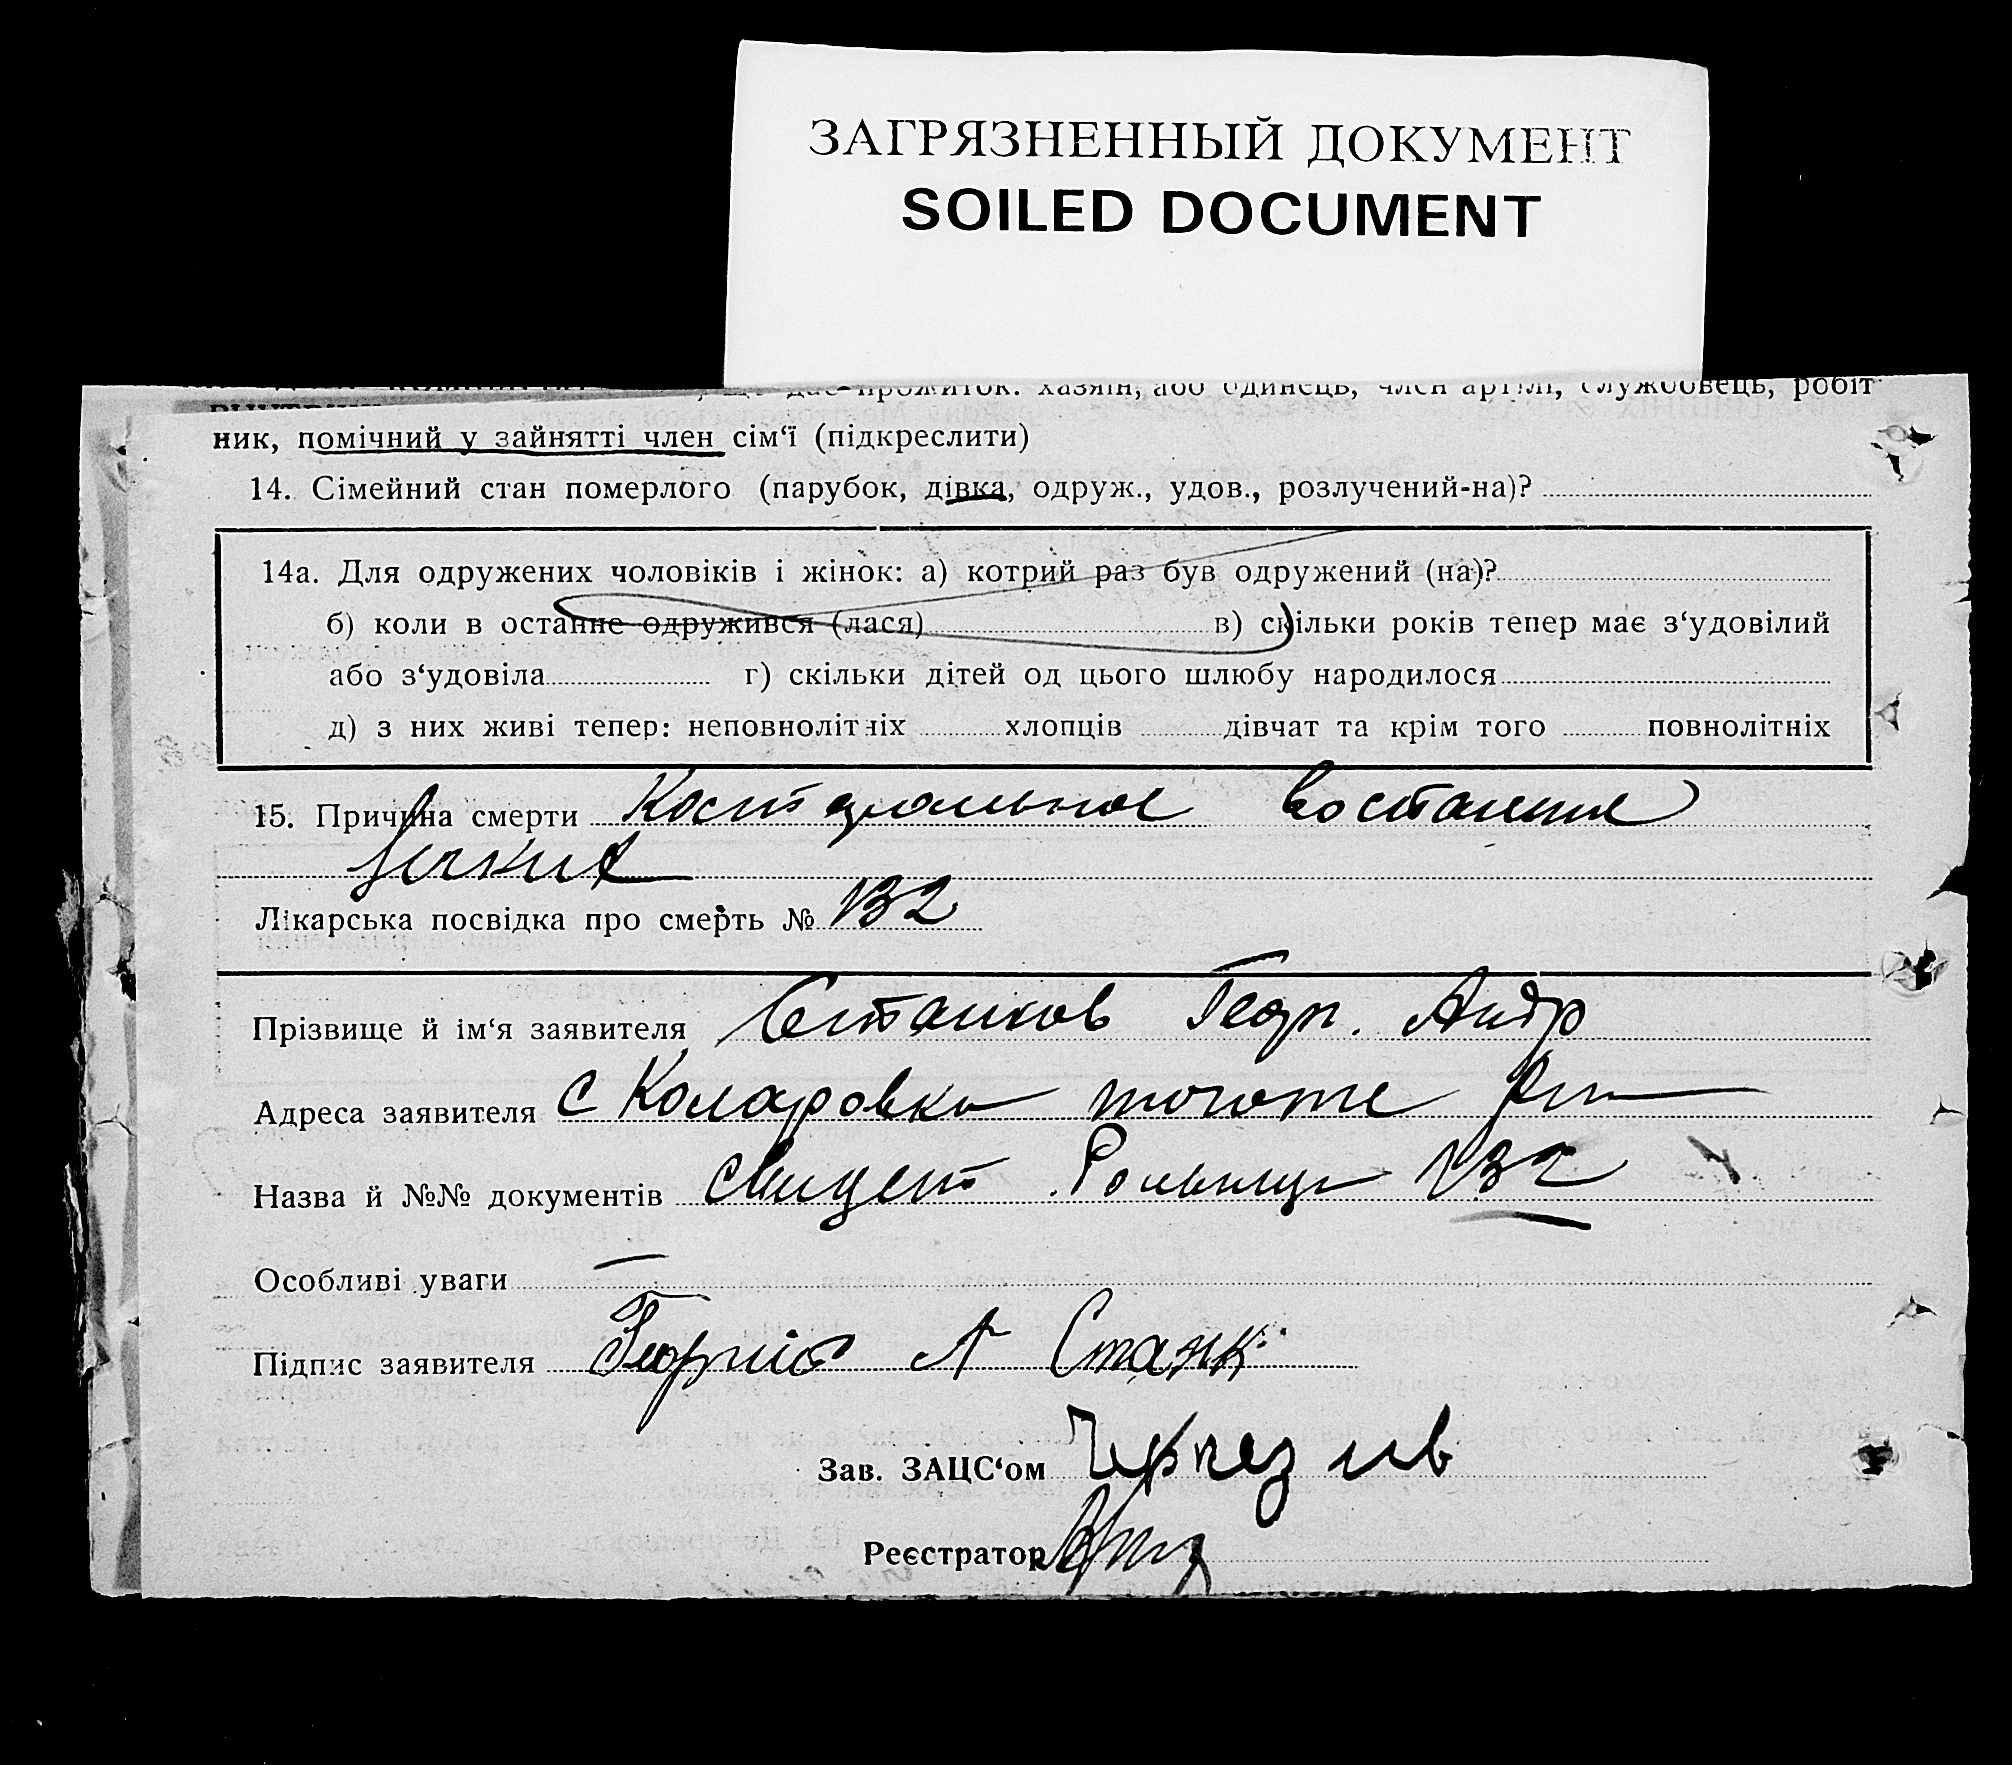 ЗАГРЯЗНЕННЫЙ ДОКУМЕНТ
SOILED DOCUMENT
дає прожиток: хазяїн, або одинець, член артілі, службовець, робіт
ник, помічний у зайнятті член сім‘ї (підкреслити)
14. Сімейний стан померлого (парубок, дівка, одруж., удов., розлучений-на)?
14а. Для одружених чоловіків і жінок: а) котрий раз був одружений (на)?
б) коли в останнє одружився (лася) в) скільки років тепер має з‘удовілий
або з‘удовіла г) скільки дітей од цього шлюбу народилося
д) з них живі тепер: неповнолітніх хлопців дівчат та крім того повнолітніх
15. Причина смерти
Лікарська посвідка про смерть № 132
Прізвище й ім‘я заявителя Станков Геор. Андр
Адреса заявителя с Коларовка
Назва й №№ документів 132
Особливі уваги —
Підпис заявителя А Станк
Зав. ЗАЦС‘ом
Реєстратор